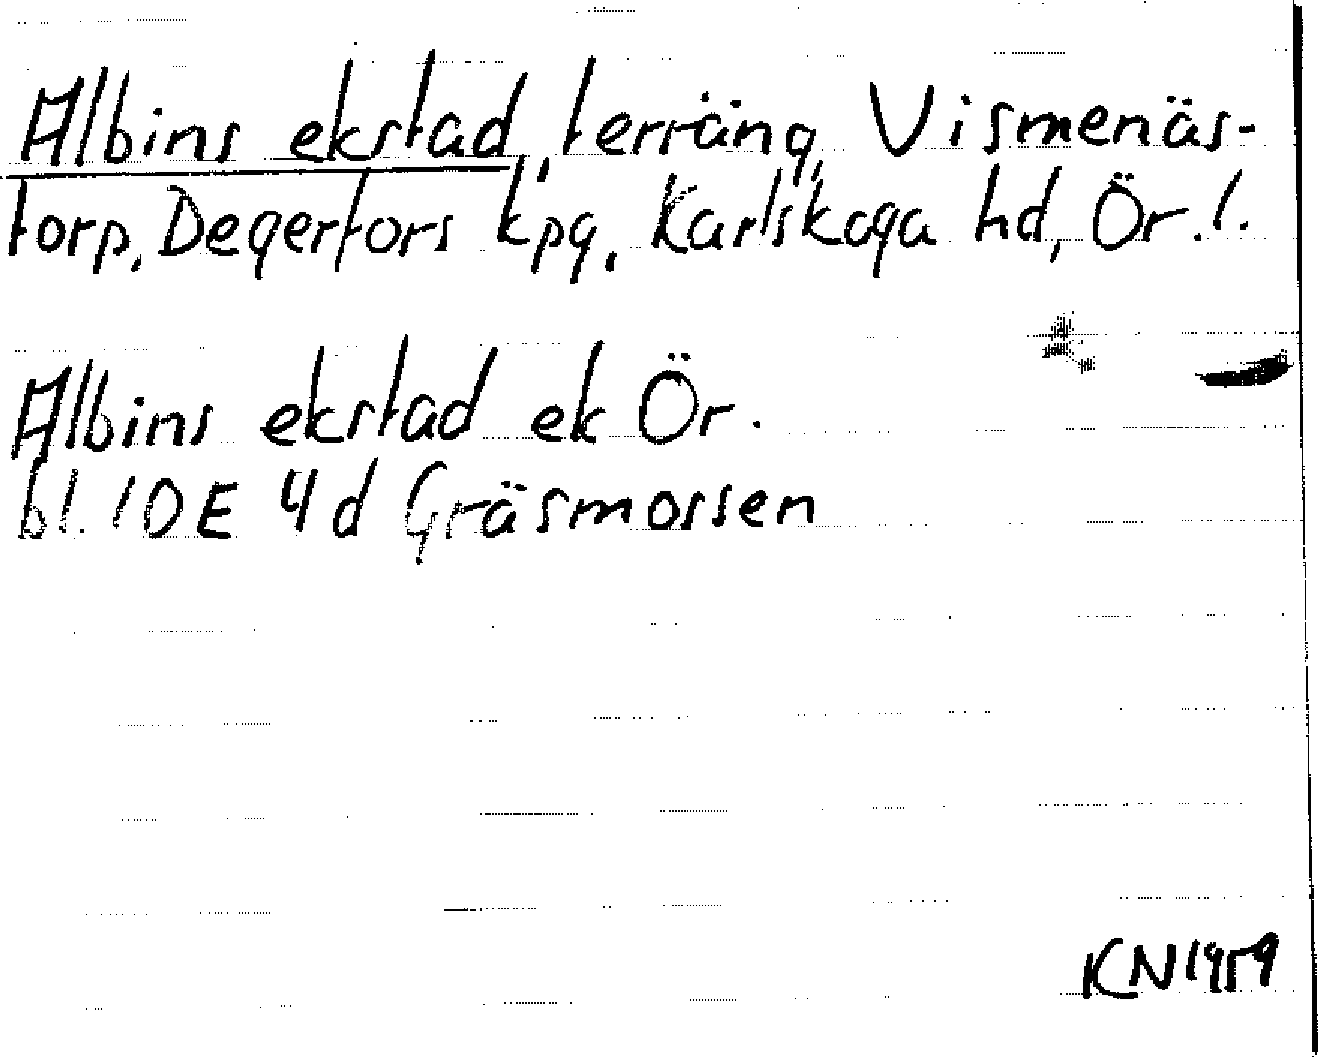 Albins ekstad, terräng, Vismenäs-
torp, Degerfors kpg, Karlskoga hd, Ör. l.
Albins ekstad ek Ör.
bl. 10E 4d Gräsmossen
KN 1959